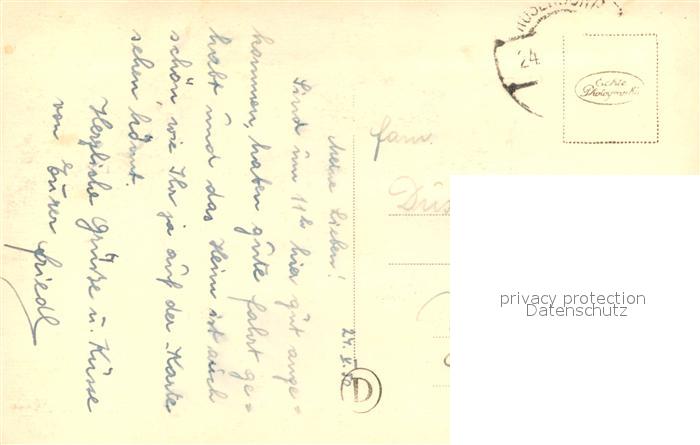 24. V. 
Meine Lieben!
Sind um 11 h hier gut ange=
kommen, haben gute Fahrt ge=
habt und das Heim ist auch
schön, wie Ihr ja auf der Karte
sehen könnt.
Herzliche Grüße u. Küsse
von Eurer Friedl
Fam.
24.
Echte
Photographie
D
privacy protection
Datenschutz